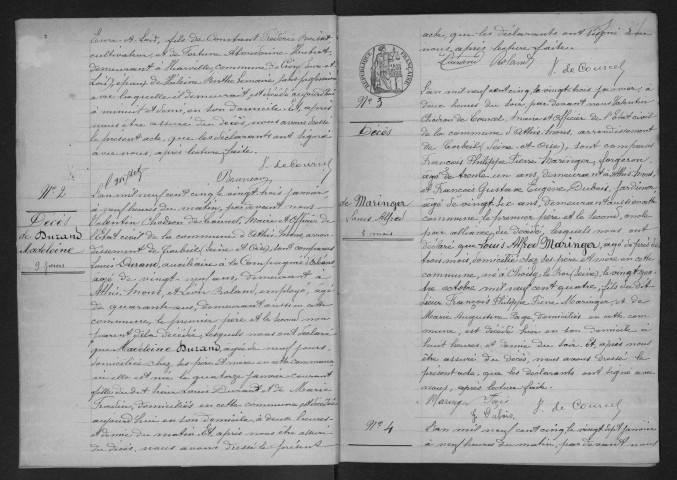 Loire et Loir, fils de Constant
cultivateur, et de
demeurant à
Loir, époux de
avec laquelle il demeurait, est décédé aujourd'hui
à minuit et demi, en son domicile. Et, après
nous être assuré du décès, nous avons dressé
le présent acte, que les déclarants ont signé
avec nous, après lecture faite.
V. de Courcel
Nº 2
Décès
de Durand
Madeleine
9 jours
L'an mil neuf cent cinq, le vingt trois janvier
à neuf heures du matin, par devant nous
Valentin Chodron de Courcel, Maire et Officier de
l'état civil de la commune d'Athis-Mons, arron-
dissement de Corbeil (Seine et Oise) sont comparus
Louis Durand, auxiliaire à la Compagnie d'Orléans
âgé de vingt-neuf ans, demeurant à
Athis-Mons, et Léon Roland, employé, âgé
de quarante ans, demeurant aussi en cette
commune, le premier père et le second non
parent de la décédée, lesquels nous ont déclaré
que Madeleine Durand, âgée de neuf jours,
domiciliée chez ses père et mère en cette commune
où elle est née le quatorze janvier courant
fille du dit sieur Louis Durand et de Marie
domiciliés en cette commune, est décédée
aujourd'hui en son domicile, à deux heures
et demie du matin. Et, après nous être assuré
du décès, nous avons dressé le présent
acte, que les déclarants ont signé avec
nous, après lecture faite.
Durand Roland V. de Courcel
RÉPUBLIQUE FRANÇAISE
Nº 3
Décès
de Maringer
Louis Alfred
3 mois
L'an mil neuf cent cinq, le vingt trois janvier, à
deux heures du soir, par devant nous Valentin
Chodron de Courcel, Maire et Officier de l'état civil
de la commune d'Athis-Mons, arrondissement
de Corbeil (Seine et Oise), sont comparus
François Philippe Pierre Maringer, forgeron,
âgé de trente un ans, demeurant à Athis-Mons,
et François Gustave Eugène Dubois, jardinier,
âgé de vingt ans, demeurant aussi en cette
commune, le premier père et le second, oncle
par alliance, du décédé, lesquels nous ont
déclaré que Louis Alfred Maringer, âgé de près de
trois mois, domicilié chez ses père et mère en cette
commune, né à Choisy le Roi (Seine), le vingt
octobre mil neuf cent quatre, fils du dit
sieur François Philippe Pierre Maringer, et de
Marie Augustine domiciliés en cette com-
mune, est décédé hier en son domicile à
huit heures et demie du soir. Et, après nous
être assuré du décès, nous avons dressé le
présent acte, que les déclarants ont signé avec
nous, après lecture faite.
V. de Courcel
Nº 4
L'an mil neuf cent cinq, le vingt sept janvier
à neuf heures du matin, par devant nous